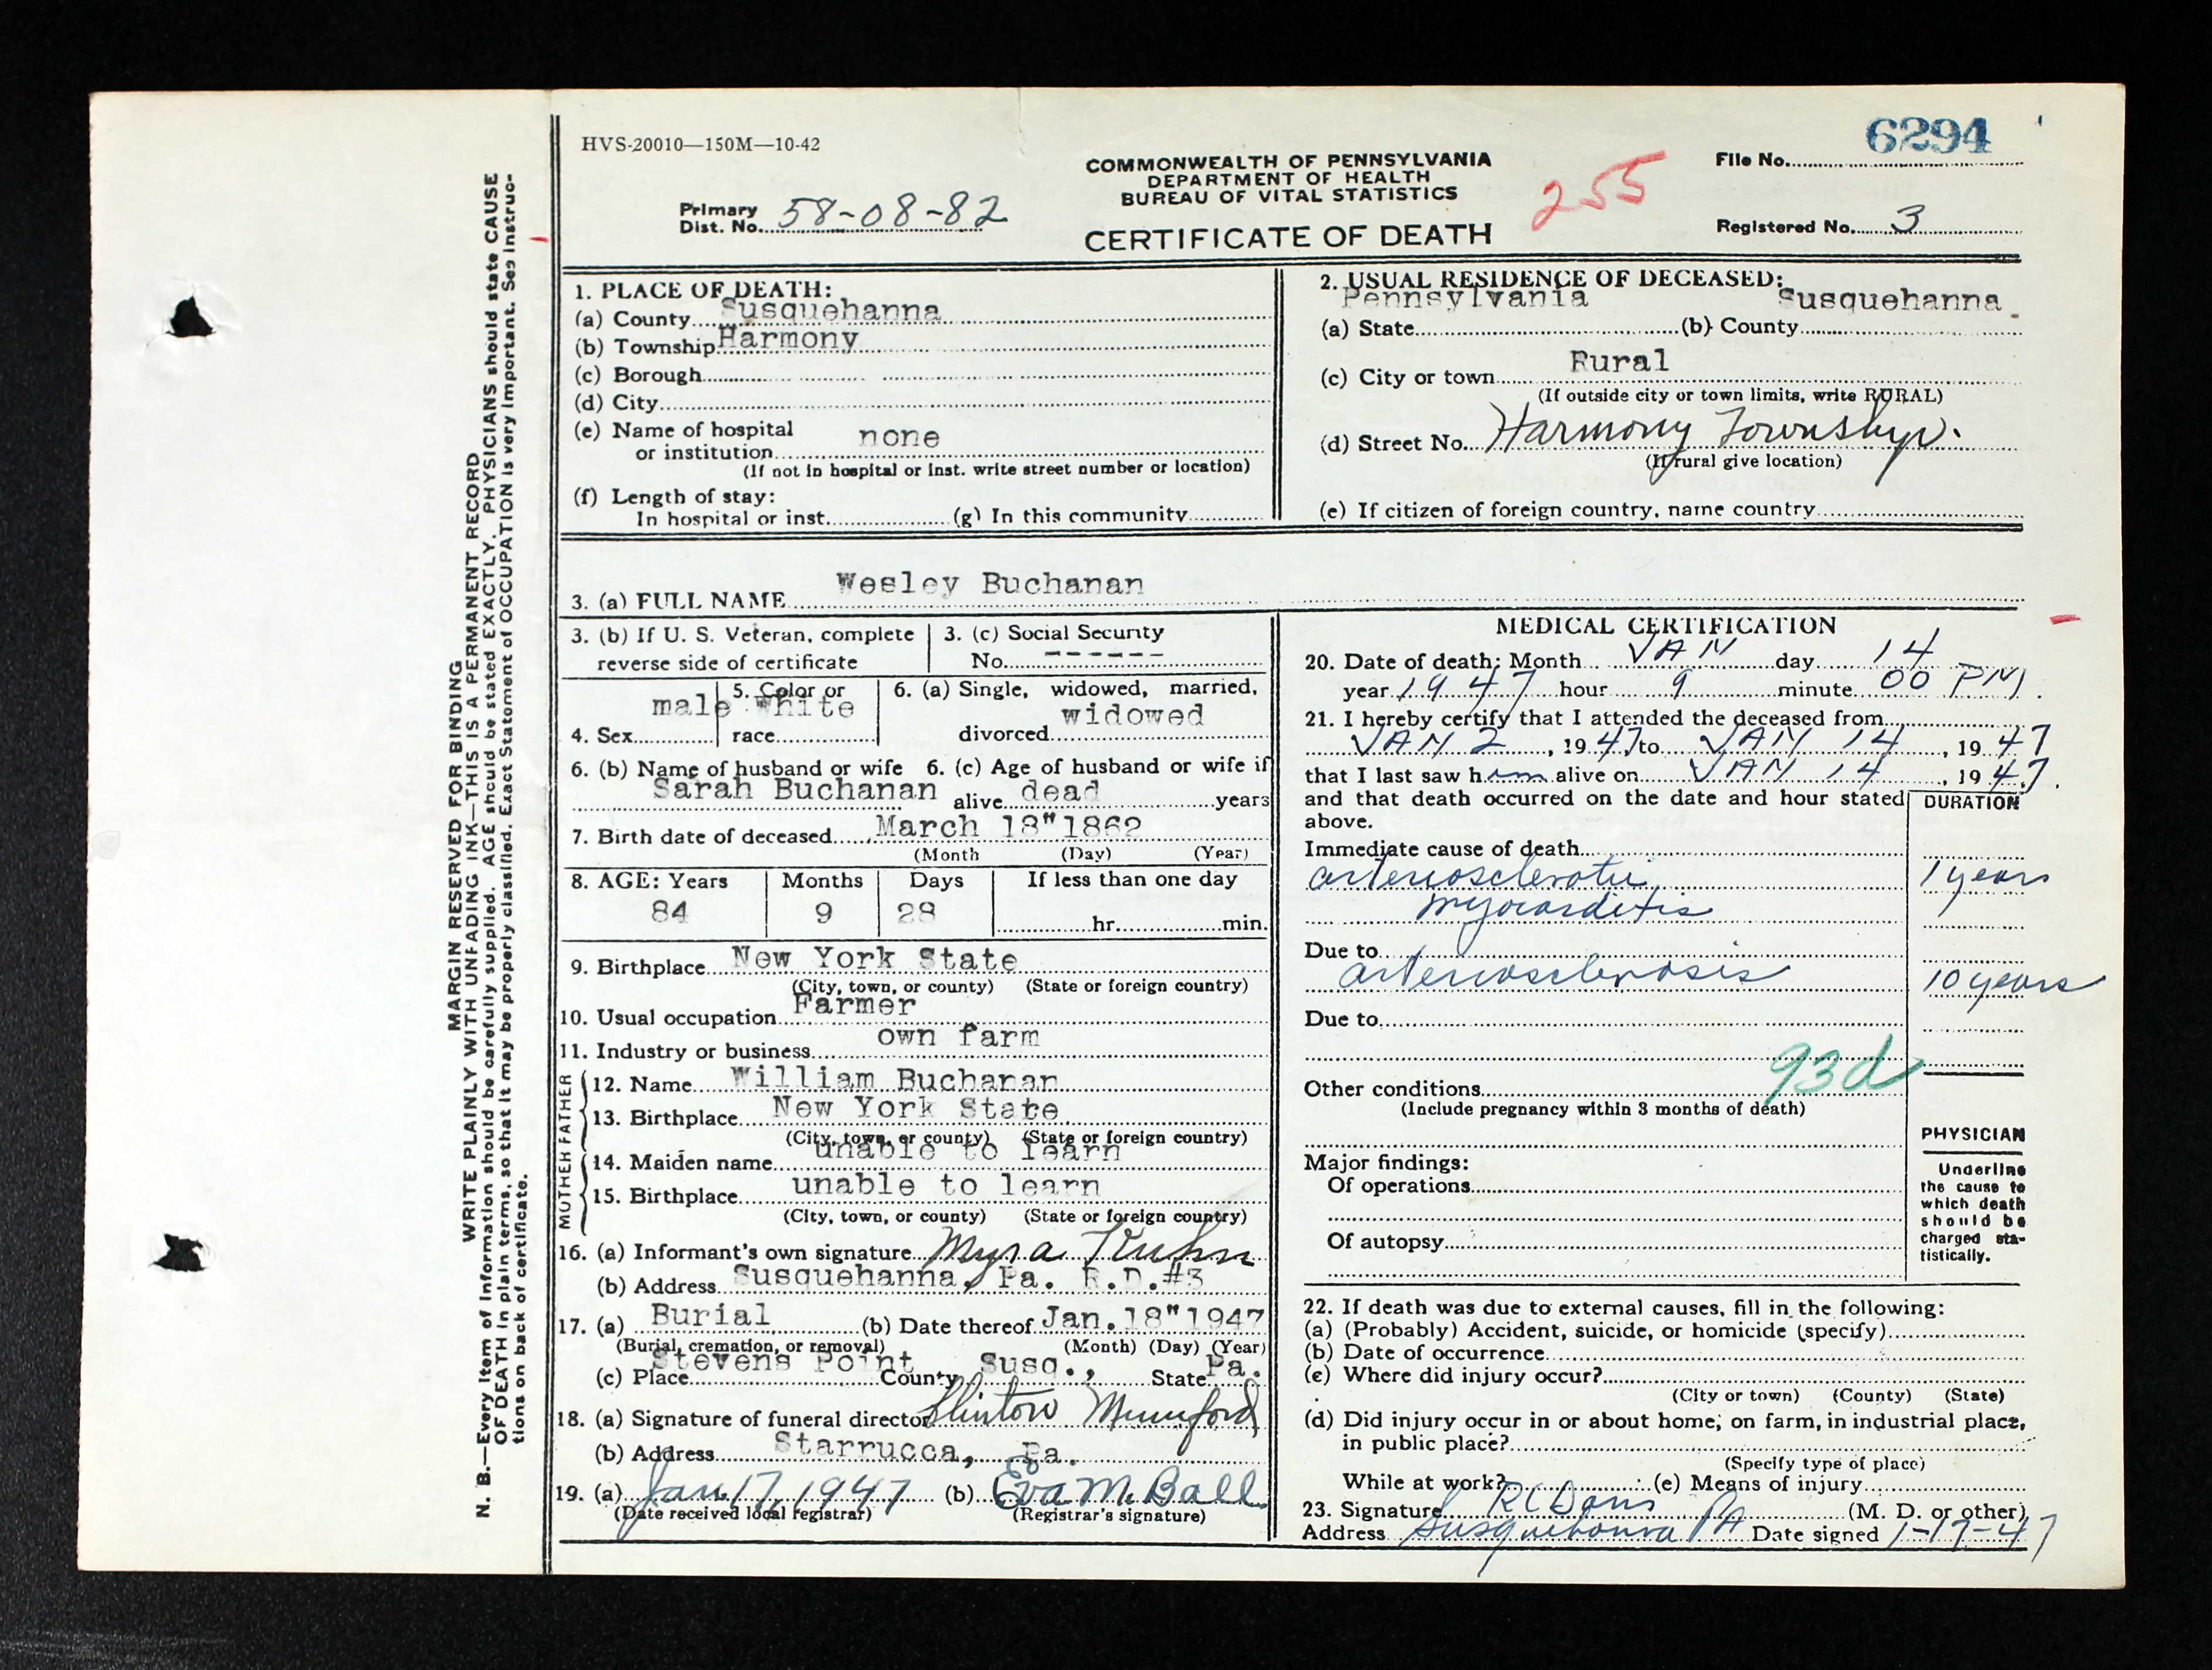 HVS-20010—150M—10-42
6294
COMMONWEALTH OF PENNSYLVANIA
DEPARTMENT OF HEALTH
BUREAU OF VITAL STATISTICS
CERTIFICATE OF DEATH
255
File No.
Primary
Dist. No. 58-08-82
Registered No. 3
MARGIN RESERVED FOR BINDING
WRITE PLAINLY WITH UNFADING INK—THIS IS A PERMANENT RECORD
N. B.—Every item of information should be carefully supplied. AGE should be stated EXACTLY. PHYSICIANS should state CAUSE
OF DEATH in plain terms, so that it may be properly classified. Exact Statement of OCCUPATION is very important. See instruc-
tions on back of certificate.
1. PLACE OF DEATH:
(a) County Susquehanna
(b) Township Harmony
(c) Borough
(d) City
(e) Name of hospital
or institution none
(If not in hospital or inst. write street number or location)
(f) Length of stay:
In hospital or inst. (g) In this community
2. USUAL RESIDENCE OF DECEASED:
Pennsylvania Susquehanna
(a) State (b) County
(c) City or town Rural
(If outside city or town limits, write RURAL)
(d) Street No. Harmony Township.
(If rural give location)
(e) If citizen of foreign country, name country
3. (a) FULL NAME Wesley Buchanan
3. (b) If U. S. Veteran, complete
reverse side of certificate
3. (c) Social Security
No. ------
4. Sex male
5. Color or
race White
6. (a) Single, widowed, married,
divorced widowed
6. (b) Name of husband or wife
Sarah Buchanan
6. (c) Age of husband or wife if
alive dead years
7. Birth date of deceased March 18" 1862
(Month (Day) (Year)
8. AGE: Years Months Days If less than one day
84 9 28 hr. min.
9. Birthplace New York State
(City, town, or county) (State or foreign country)
10. Usual occupation Farmer
11. Industry or business own farm
FATHER
12. Name William Buchanan
13. Birthplace New York State
(City, town, or county) (State or foreign country)
MOTHER
14. Maiden name unable to learn
15. Birthplace unable to learn
(City, town, or county) (State or foreign country)
16. (a) Informant's own signature Myra Kuhn
(b) Address Susquehanna, Pa. R.D.#3
17. (a) Burial (b) Date thereof Jan. 18" 1947
(Burial, cremation, or removal) (Month) (Day) (Year)
(c) Place Stevens Point County Susq., State Pa.
18. (a) Signature of funeral director Clinton Mumford
(b) Address Starrucca, Pa.
19. (a) Jan. 17, 1947 (b) Eva M. Ball
(Date received local registrar) (Registrar's signature)
MEDICAL CERTIFICATION
20. Date of death: Month JAN day 14
year 1947 hour 9 minute 00 PM.
21. I hereby certify that I attended the deceased from
JAN 2, 1947 to JAN 14, 1947
that I last saw him alive on JAN 14, 1947.
and that death occurred on the date and hour stated
above.
DURATION
Immediate cause of death
arteriosclerotic 1 years
myocarditis
Due to
arteriosclerosis 10 years
Due to
93d
Other conditions
(Include pregnancy within 3 months of death)
Major findings:
Of operations
Of autopsy
PHYSICIAN
Underline
the cause to
which death
should be
charged sta-
tistically.
22. If death was due to external causes, fill in the following:
(a) (Probably) Accident, suicide, or homicide (specify)
(b) Date of occurrence
(c) Where did injury occur?
(City or town) (County) (State)
(d) Did injury occur in or about home, on farm, in industrial place,
in public place?
(Specify type of place)
While at work? (e) Means of injury
23. Signature R C Davis (M. D. or other)
Address Susquehanna PA Date signed 1-17-47